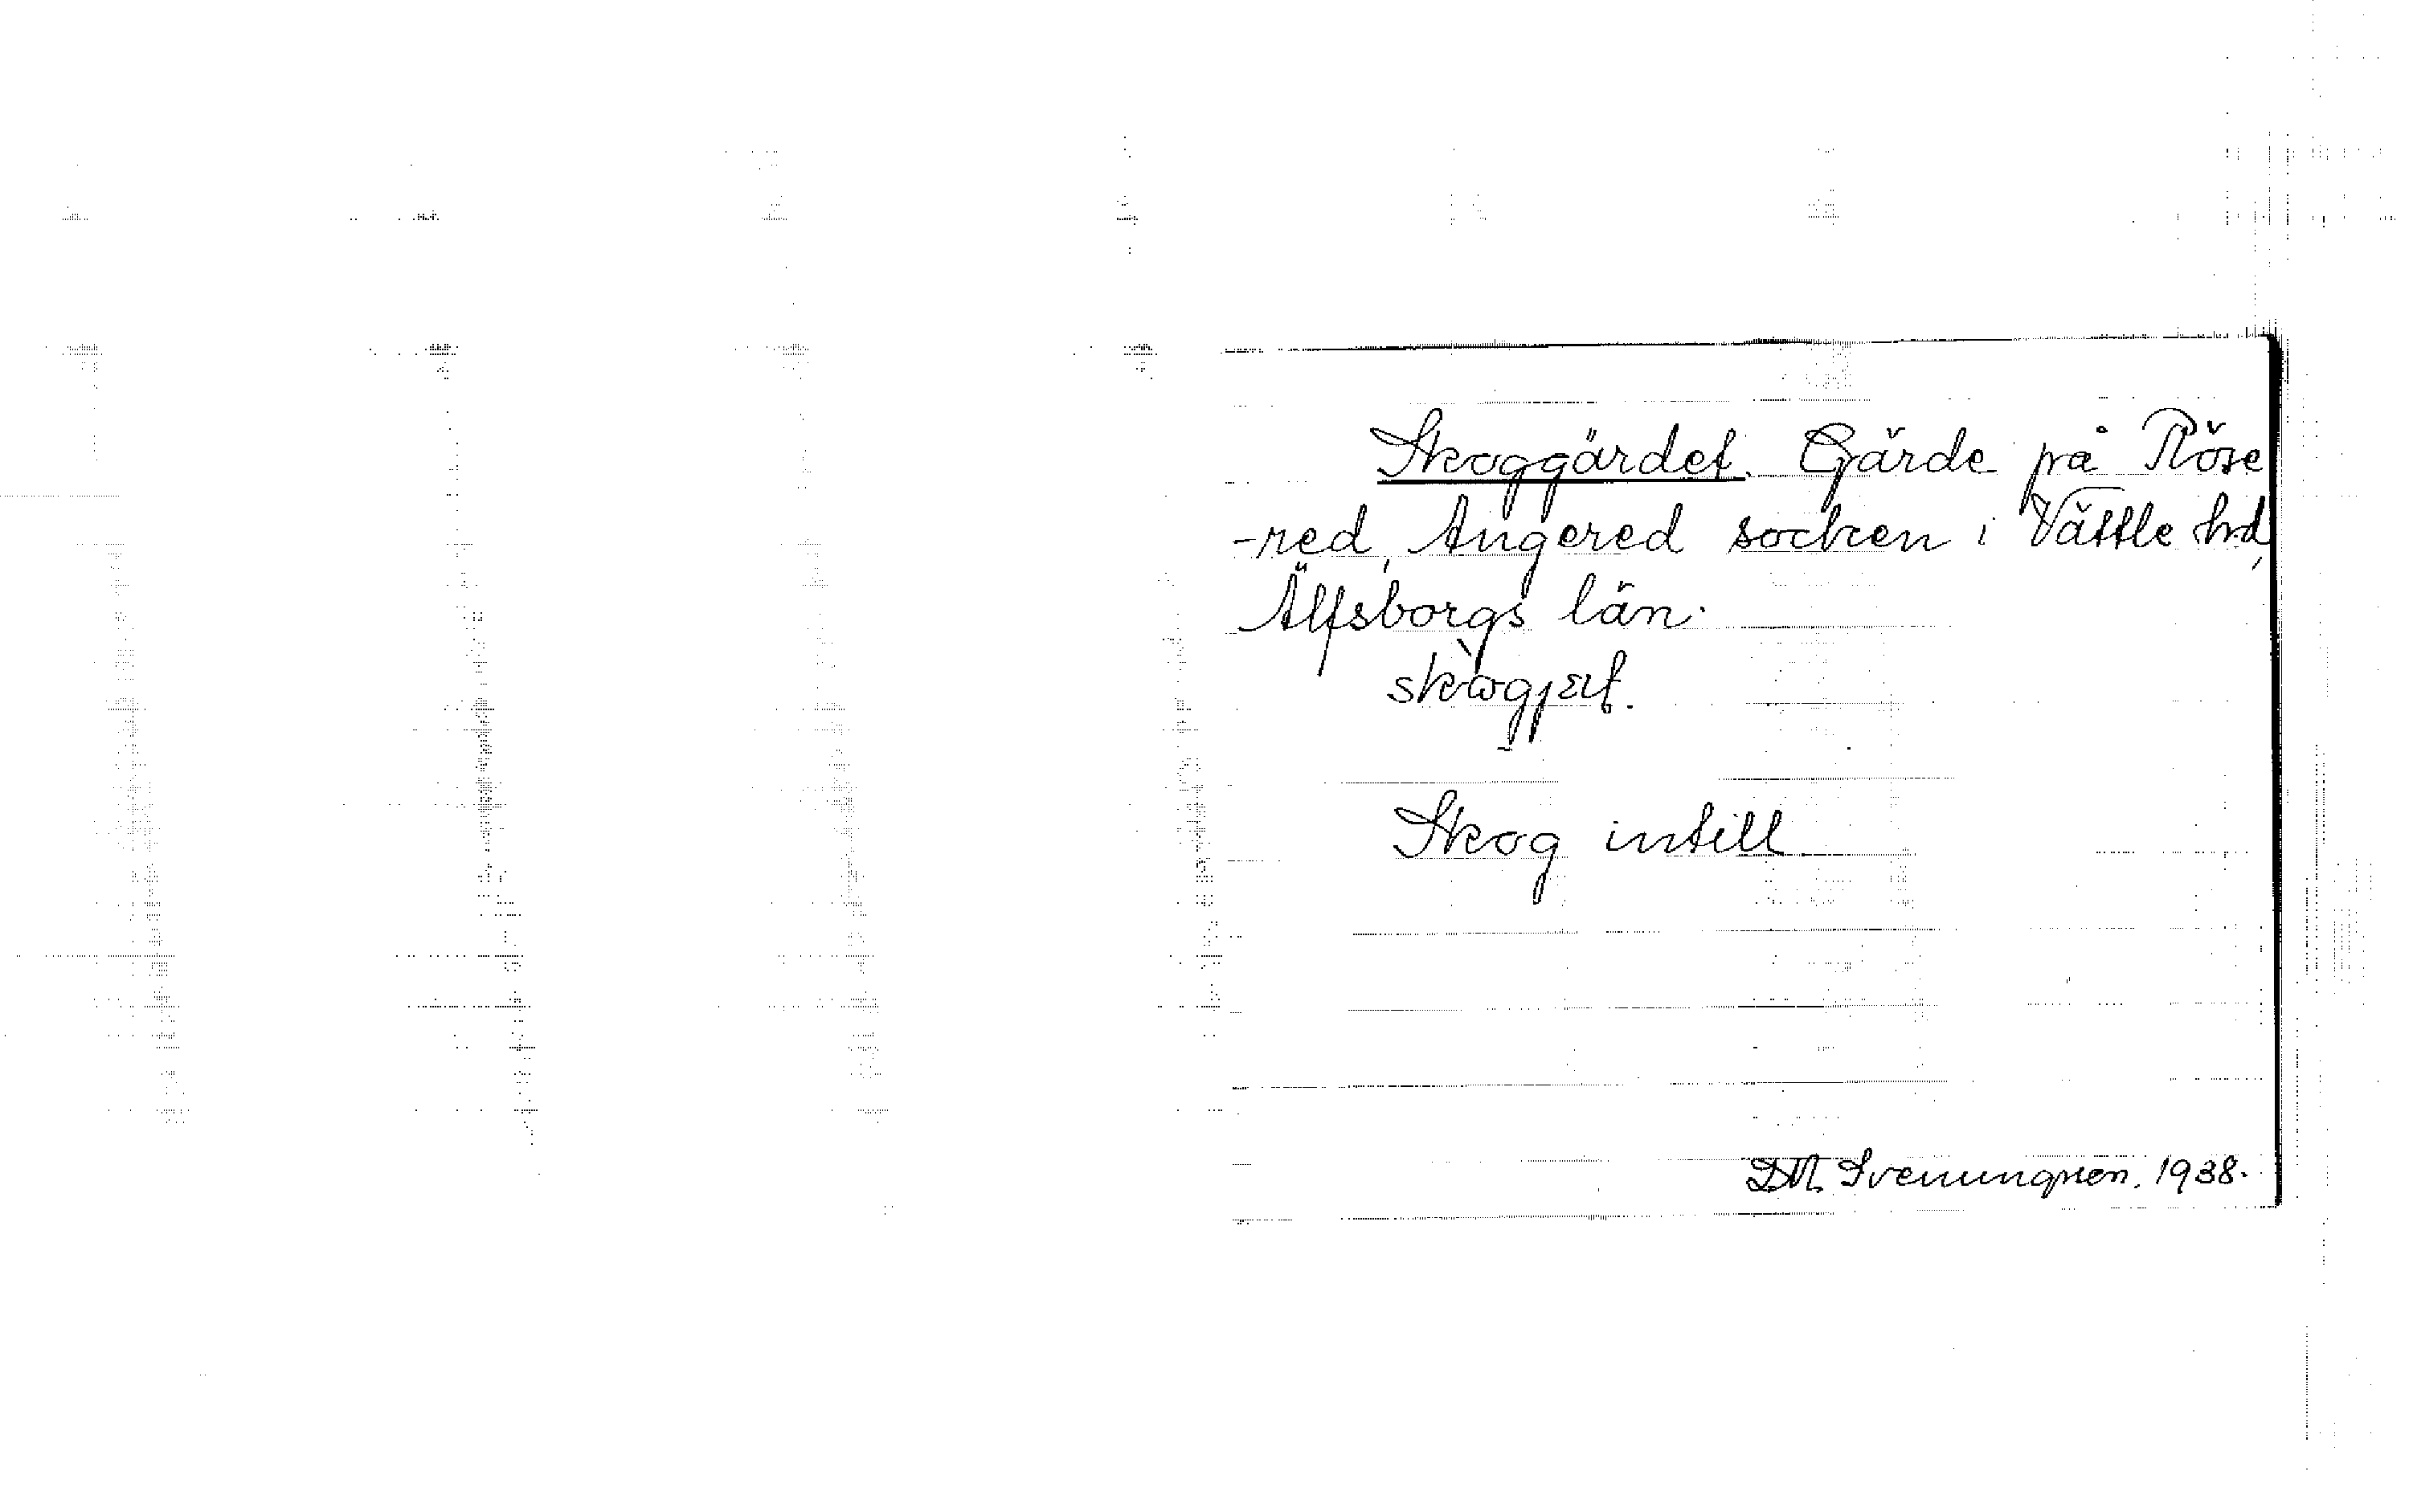 Skoggärdet. Gärde på Röse
-red, Angered socken i Vättle hd,
Älfsborgs län.
Skog intill
1938.